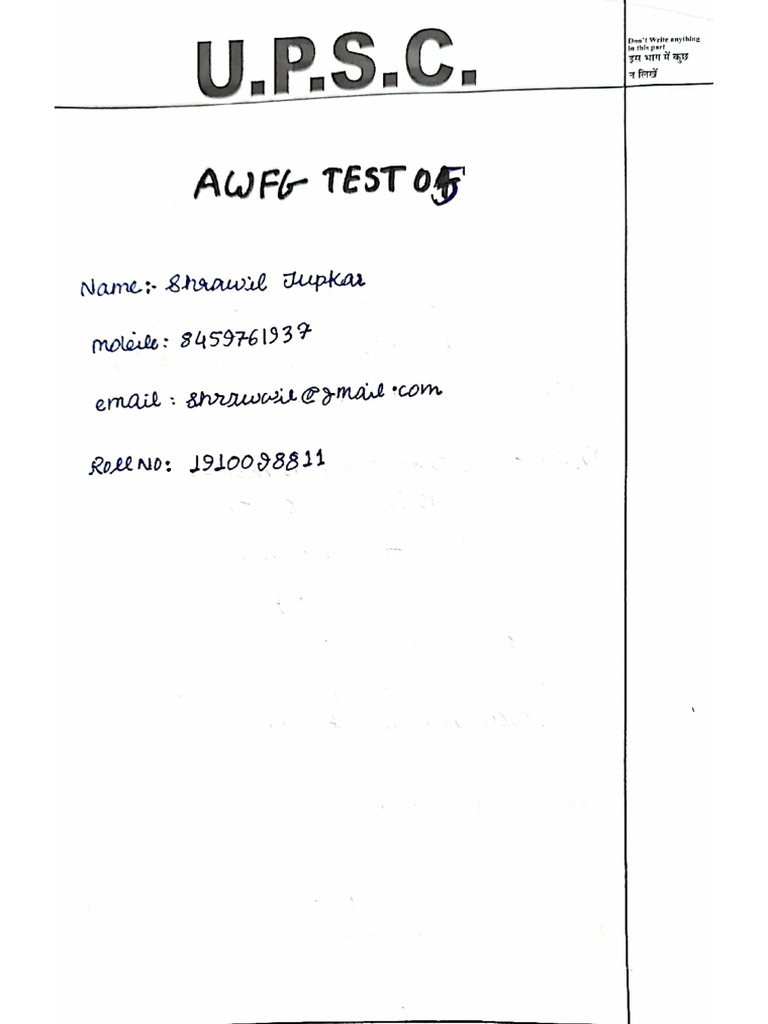 U.P.S.C.
Don't Write anything
in this part
इस भाग में कुछ
न लिखें
AWFG TEST 05
Name:- Shrawil Jupkar
Mobile: 8459761937
email: shrawil@gmail.com
Roll NO: 1910098811